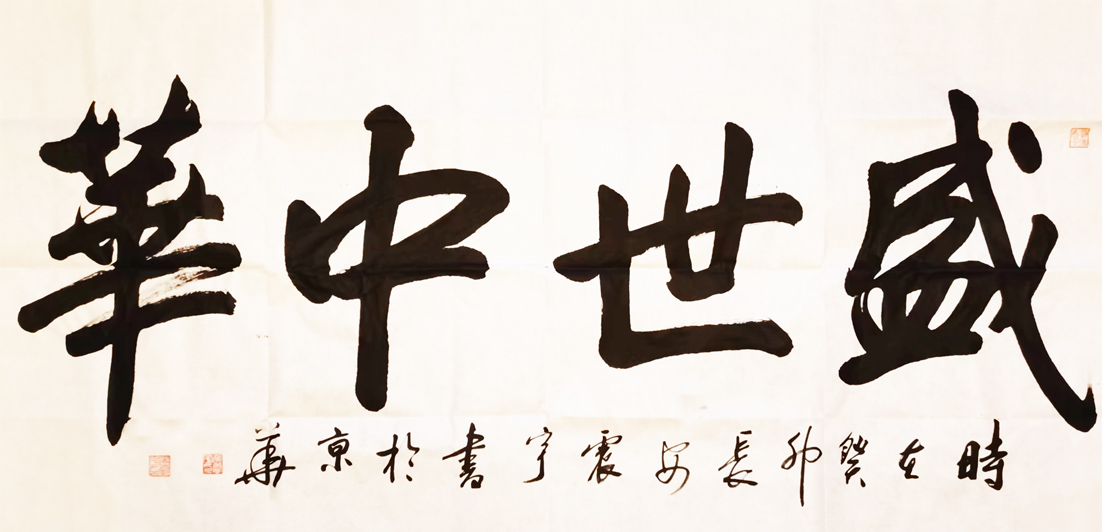 盛世中華
時在癸卯長安震宇書於京華